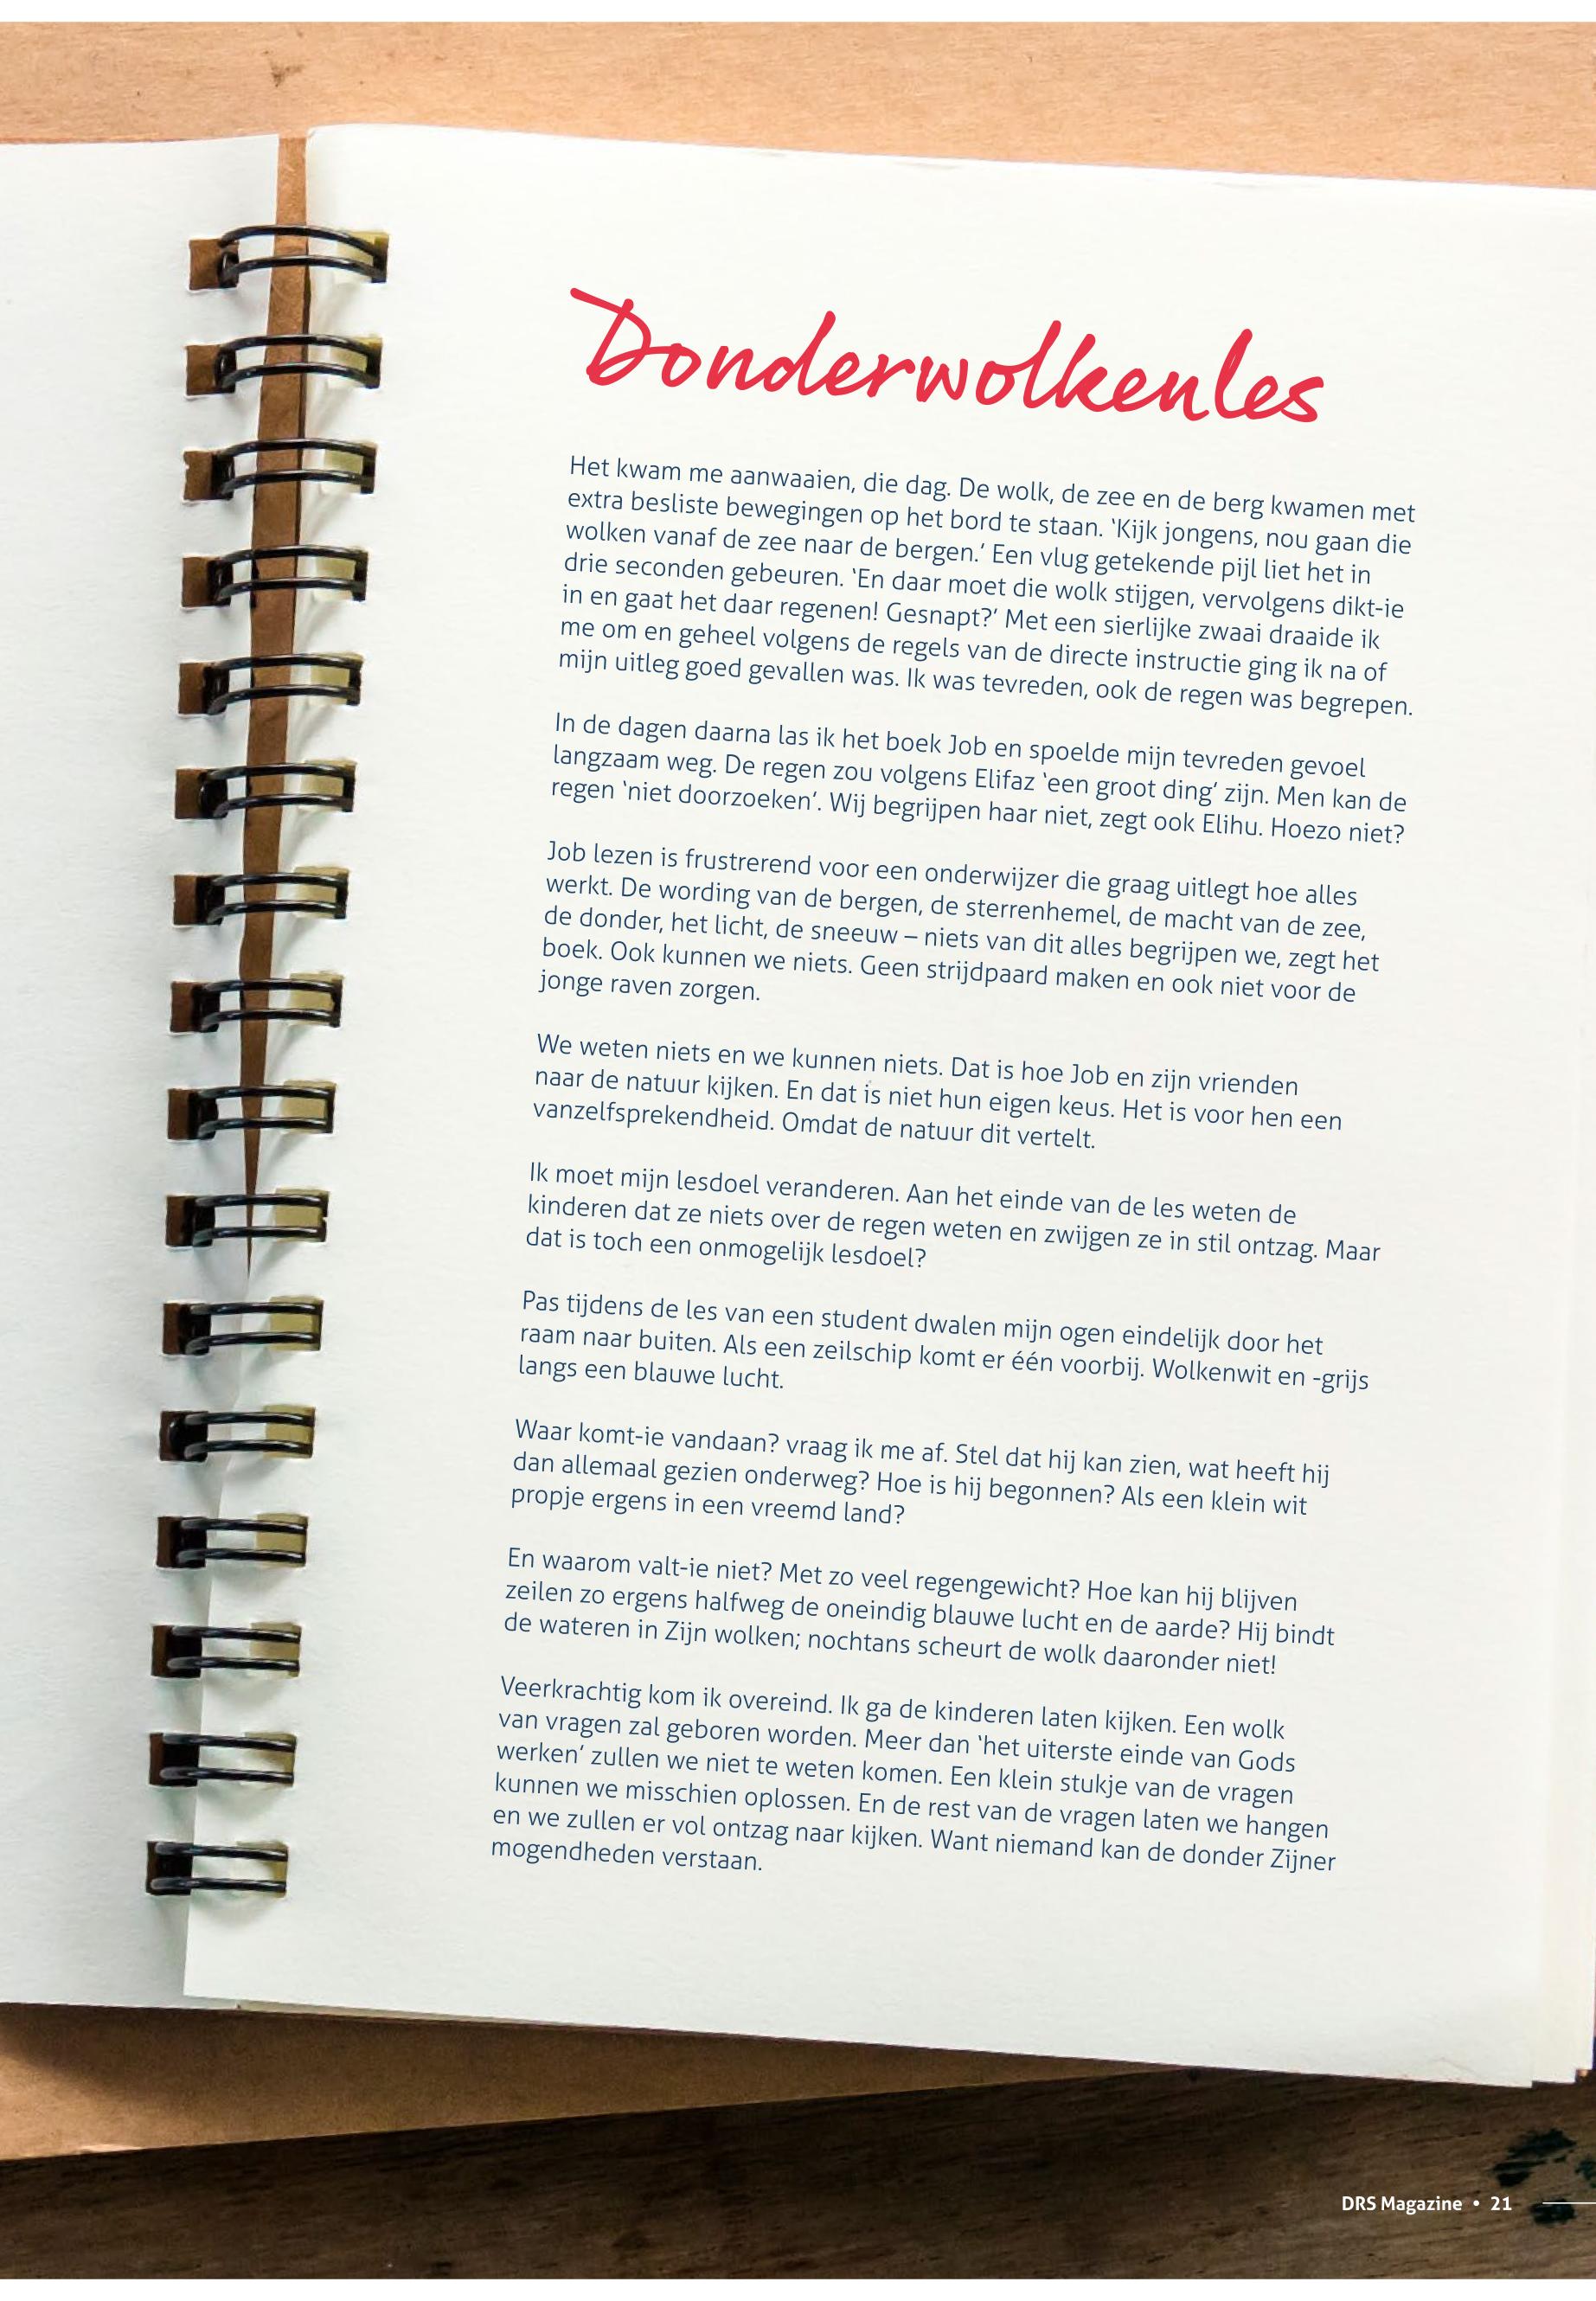 Donderwolkenles
Het kwam me aanwaaien, die dag. De wolk, de zee en de berg kwamen met
extra besliste bewegingen op het bord te staan. ‘Kijk jongens, nou gaan die
wolken vanaf de zee naar de bergen.’ Een vlug getekende pijl liet het in
drie seconden gebeuren. ‘En daar moet die wolk stijgen, vervolgens dikt-ie
in en gaat het daar regenen! Gesnapt?’ Met een sierlijke zwaai draaide ik
me om en geheel volgens de regels van de directe instructie ging ik na of
mijn uitleg goed gevallen was. Ik was tevreden, ook de regen was begrepen.
In de dagen daarna las ik het boek Job en spoelde mijn tevreden gevoel
langzaam weg. De regen zou volgens Elifaz ‘een groot ding’ zijn. Men kan de
regen ‘niet doorzoeken’. Wij begrijpen haar niet, zegt ook Elihu. Hoezo niet?
Job lezen is frustrerend voor een onderwijzer die graag uitlegt hoe alles
werkt. De wording van de bergen, de sterrenhemel, de macht van de zee,
de donder, het licht, de sneeuw – niets van dit alles begrijpen we, zegt het
boek. Ook kunnen we niets. Geen strijdpaard maken en ook niet voor de
jonge raven zorgen.
We weten niets en we kunnen niets. Dat is hoe Job en zijn vrienden
naar de natuur kijken. En dat is niet hun eigen keus. Het is voor hen een
vanzelfsprekendheid. Omdat de natuur dit vertelt.
Ik moet mijn lesdoel veranderen. Aan het einde van de les weten de
kinderen dat ze niets over de regen weten en zwijgen ze in stil ontzag. Maar
dat is toch een onmogelijk lesdoel?
Pas tijdens de les van een student dwalen mijn ogen eindelijk door het
raam naar buiten. Als een zeilschip komt er één voorbij. Wolkenwit en -grijs
langs een blauwe lucht.
Waar komt-ie vandaan? vraag ik me af. Stel dat hij kan zien, wat heeft hij
dan allemaal gezien onderweg? Hoe is hij begonnen? Als een klein wit
propje ergens in een vreemd land?
En waarom valt-ie niet? Met zo veel regengewicht? Hoe kan hij blijven
zeilen zo ergens halfweg de oneindig blauwe lucht en de aarde? Hij bindt
de wateren in Zijn wolken; nochtans scheurt de wolk daaronder niet!
Veerkrachtig kom ik overeind. Ik ga de kinderen laten kijken. Een wolk
van vragen zal geboren worden. Meer dan ‘het uiterste einde van Gods
werken’ zullen we niet te weten komen. Een klein stukje van de vragen
kunnen we misschien oplossen. En de rest van de vragen laten we hangen
en we zullen er vol ontzag naar kijken. Want niemand kan de donder Zijner
mogendheden verstaan.
DRS Magazine • 21